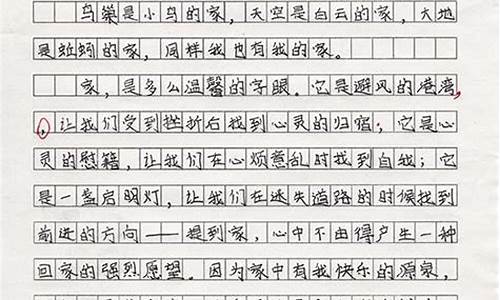 鸟巢是小鸟的家，天空是白云的家，大地
是蚯蚓的家，同样我也有我的家。
家，是多么温馨的字眼。它是避风的港湾，
，让我们受到挫折后找到心灵的归宿；它是心
灵的慰籍，让我们在心烦意乱时找到自我；它
是一盏启明灯，让我们在迷失道路的时候找到
前进的方向——提到家，心中不由得产生一种
回家的强烈愿望。因为家中有我快乐的源泉，